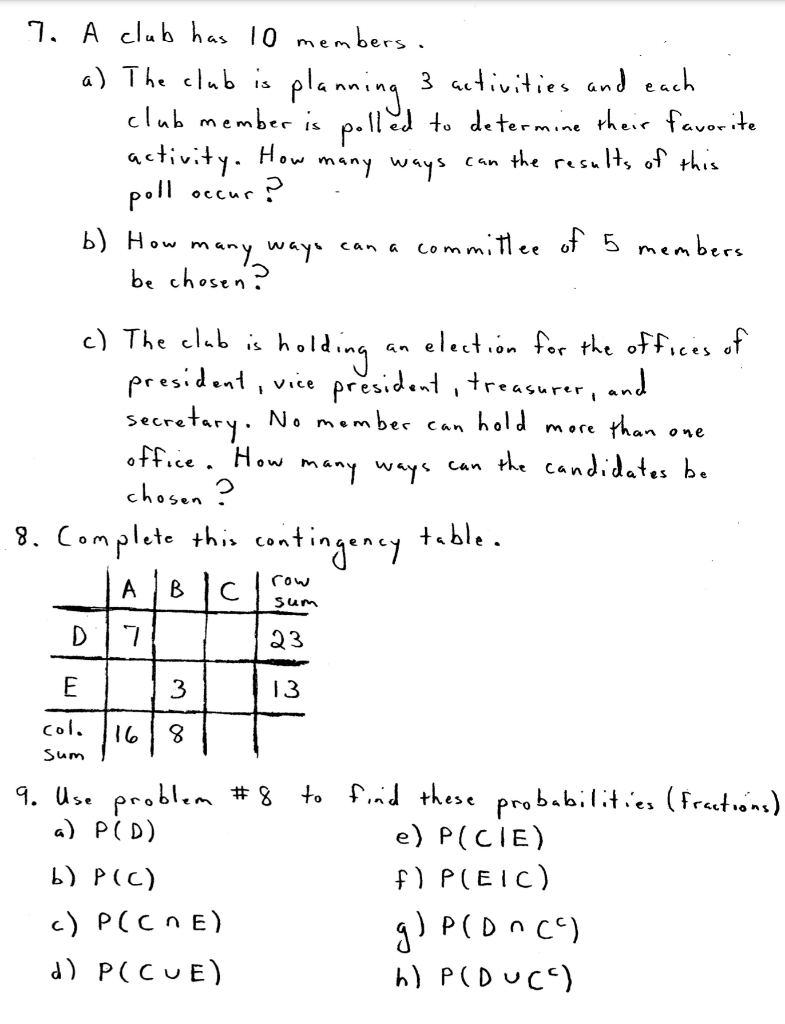 7. A club has 10 members.
a) The club is planning 3 activities and each
club member is polled to determine their favorite
activity. How many ways can the results of this
poll occur?
b) How many ways can a committee of 5 members
be chosen?
c) The club is holding an election for the offices of
president, vice president, treasurer, and
secretary. No member can hold more than one
office. How many ways can the candidates be
chosen?
8. Complete this contingency table.
A B C row
sum
D 7 23
E 3 13
col. 16 8
sum
9. Use problem #8 to find these probabilities (fractions)
a) P(D)
e) P(C|E)
b) P(C)
f) P(E|C)
c) P(C ∩ E)
g) P(D ∩ Cᶜ)
d) P(C ∪ E)
h) P(D ∪ Cᶜ)